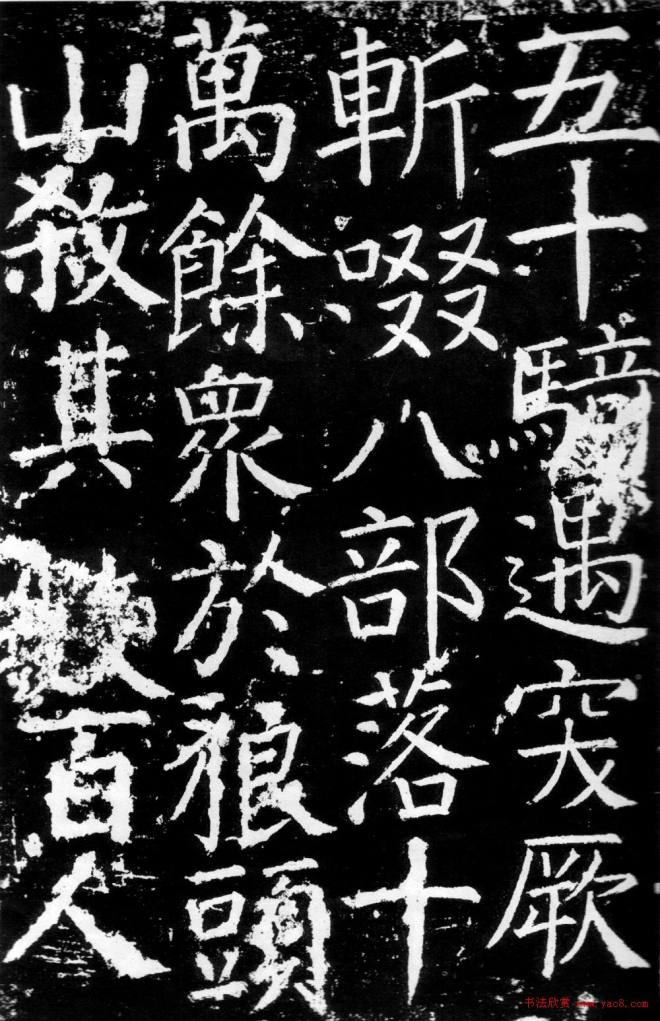 五十騎遇突厥
斬啜八部落十
萬餘衆於狼頭
山殺其數百人
书法欣赏 www.yac8.com